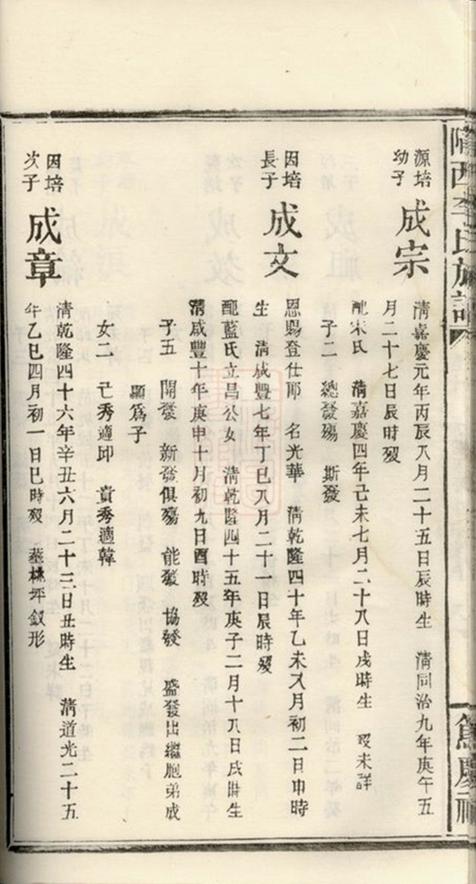 隴西李氏族譜
餘慶祠
源培幼子
成宗
清嘉慶元年丙辰八月二十五日辰時生 清同治九年庚午五
月二十七日辰時歿
配宋氏 清嘉慶四年己未七月二十八日戌時生 歿未詳
子二 總發殤 斯發
因培長子
成文
恩賜登仕郎 名光華 清乾隆四十年乙未八月初二日申時
生 清咸豐七年丁巳八月二十一日辰時歿
配藍氏立昌公女 清乾隆四十五年庚子二月十八日戌時生
清咸豐十年庚申十月初九日酉時歿
子五 開發 新發俱殤 能發 協發 盛發出繼胞弟成
顯為子
女二 己秀適邱 貢秀適韓
因培次子
成章
清乾隆四十六年辛丑六月二十三日丑時生 清道光二十五
年乙巳四月初一日巳時歿 塟桃坪釵形